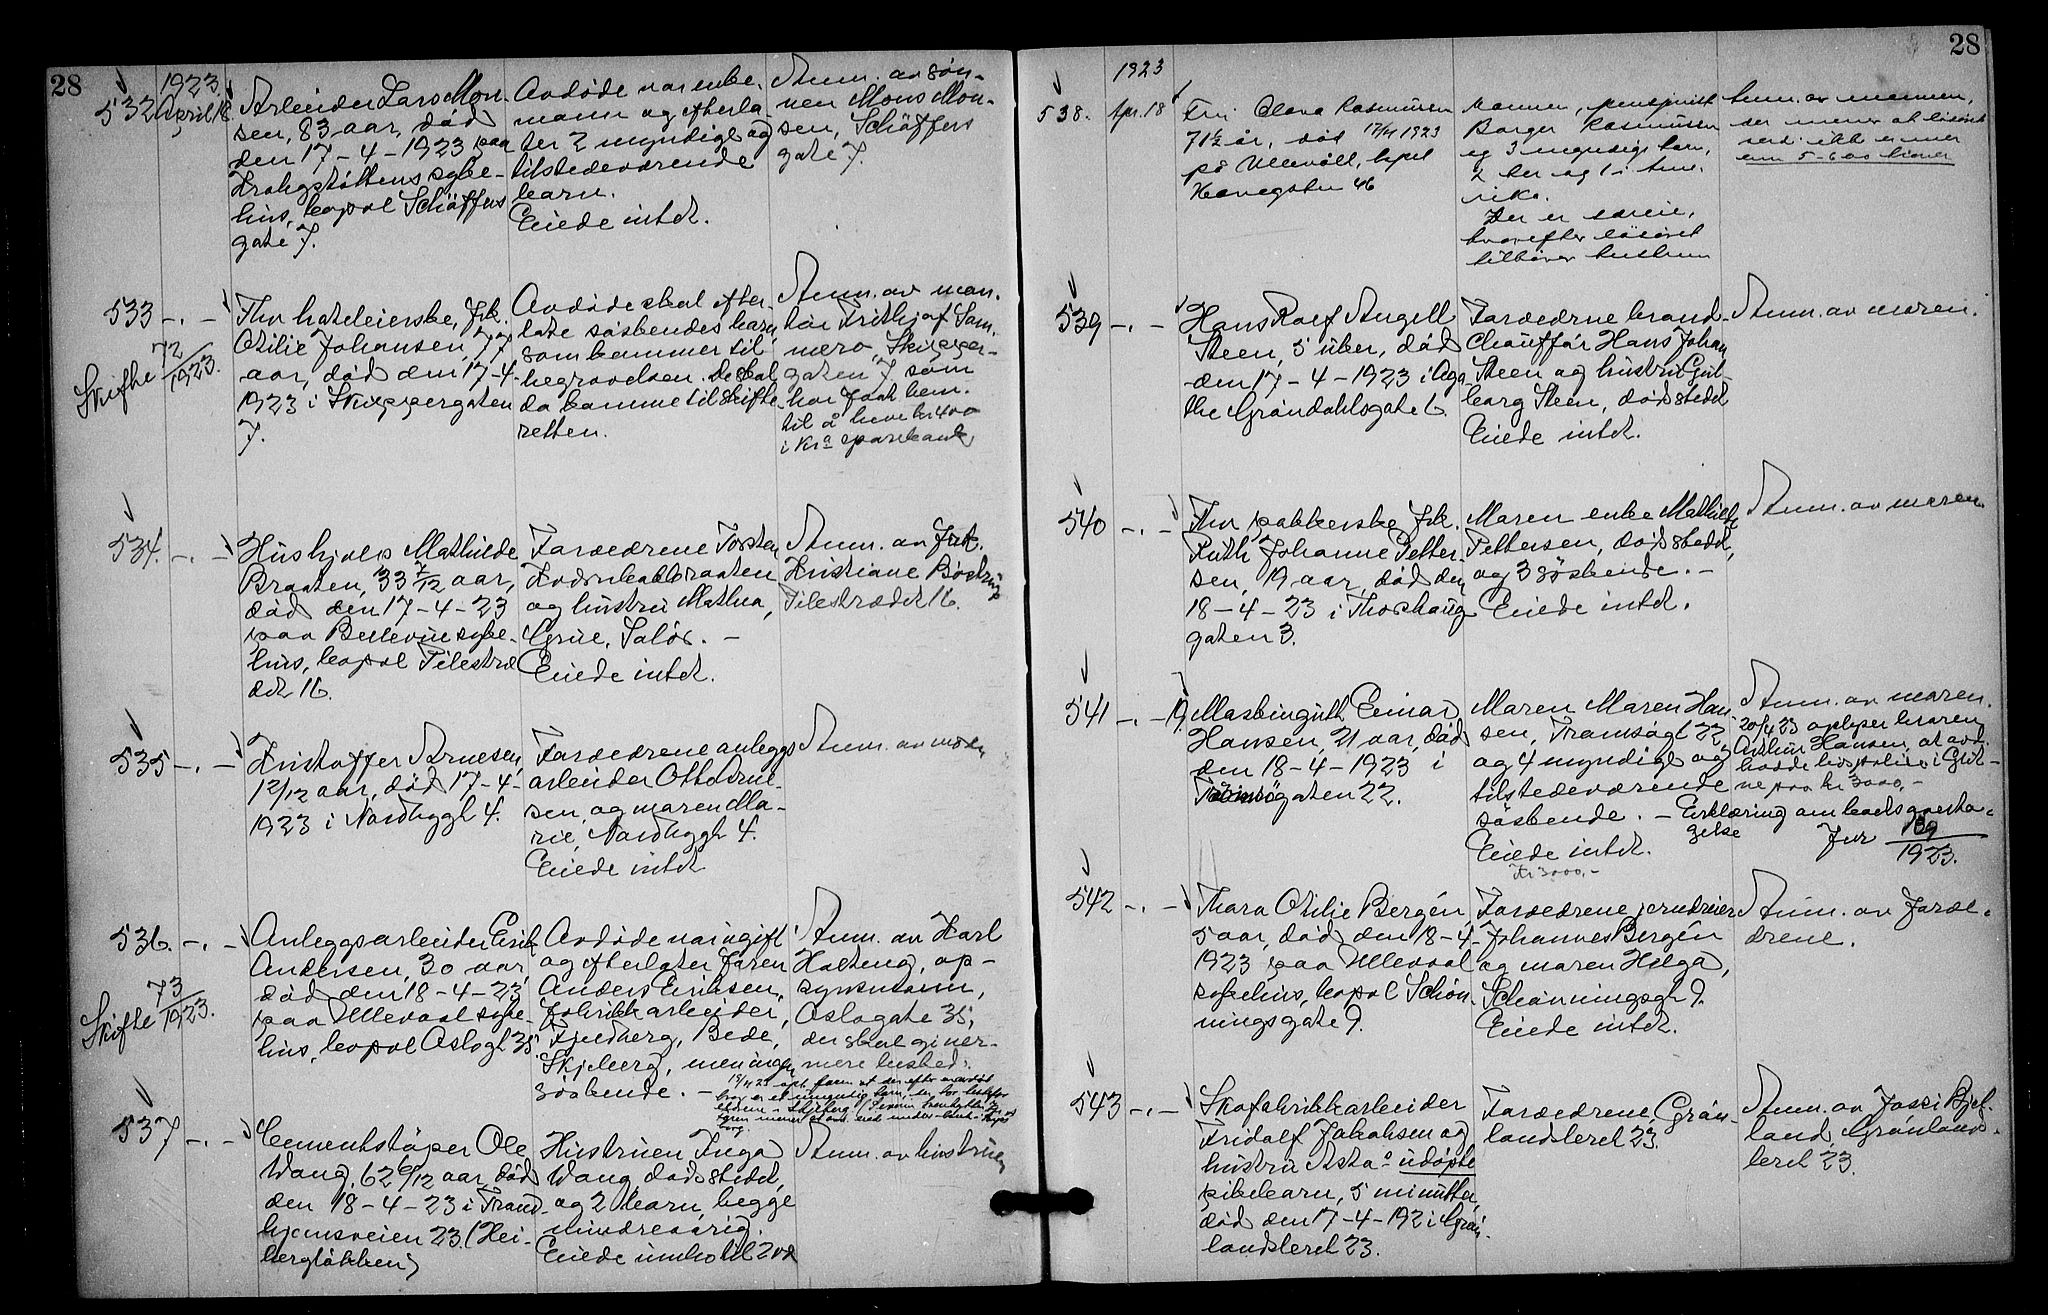 28
1923.
532 April 18.
Arbeider Lars Mon-
sen, 83 aar, död
den 17-4-1923 paa
Krohgstöttens syke-
hus, bopæl Schäffers
gate 7.
Avdöde var enke-
mann og efterla-
ter 2 myndige og
tilstedeværende
barn.
Eiede intet.
Anm. av søn-
nen Mons Mon-
sen, Schäffers
gate 7.
533 -.-
Skifte 72/1923.
Fhv. Frk.
Otilie Johansen, 77
aar, död den 17-4-
1923 i Skippergaten
7.
Avdöde skal efter-
late söskendes barn,
som kommer til
begravelsen. De skal
da komme til skifte-
retten.
Anm. av
Frithjof Sam-
Skipper-
gaten 7, som
har faat bem.
til å heve kr 400
i Kra sparebank
534. -.-
Hushjelp Mathilde
Braaten, 33 7/12 aar,
död den 17-4-23
paa Bellevue syke-
hus, bopæl Pilestræ
det 16.
Forældrene Torsten
og hustru Mathea,
Grue, Solör. -
Eiede intet.
Anm. av Frk.
Kristiane
Pilestrædet 16.
535 -.-
Kristoffer Arnesen,
12/12 aar, död 17-4-
1923 i Nordbygt 4.
Forældrene anleggs
arbeider Otto Arne-
sen, og moren Ma-
rie, Nordbygt 4.
Eiede intet
Anm. av moren
536. -.-
Skifte 73/1923.
Anleggsarbeider Erik
Andersen, 30 aar,
död den 18-4-23
paa Ullevaal syke-
hus, bopæl Oslogt 35.
Avdöde var ugift
og efterlater faren
Anders Eriksen,
fabrikkarbeider,
Fjeldberg, Bede,
Skjeberg, men ingen
söskende. -
Anm. av Karl
Holteng, op-
synsmann,
Oslogate 35,
der skal gi ner-
mere besked.
537 -.-
Cementstöper Ole
Wang, 62 6/12 aar, död
den 18-4-23 i Trond-
hjemsveien 23. (Hei-
berglökken)
Hustruen Inga
Wang, dödsstedet,
og 2 barn, begge
mindreaarig.
Eiede innbo til 200
Anm. av hustruen
28
1923
538. Apr. 18
Fru Clara Rasmussen
71½ år, död 17/4 1923
på Ullevål, bopæl
Hovegaten 46
Mannen, pensjonist
Borger Rasmussen
og 3 myndige barn,
2 her og 1 i Ame-
rika.
Der er særeie,
hvorefter lösöret
tilhörer hustruen
Anm. av mannen,
der mener at lösöret
verd ikke er mer
enn 5-600 kroner
539 -.-
Hans Rolf Angell
Steen, 5 uker, död
den 17-4-1923 i Aga-
the Gröndahlsgate 6.
Forældrene brand-
chaufför Hans Johan
Steen og hustru Gul-
borg Steen, dödsstedet
Eiede intet.
Anm. av moren.
540 -.-
Fhv. pakkerske Frk.
Ruth Johanne Petter
sen, 19 aar, död den
18-4-23 i Thorshaug
gaten 3.
Moren enke Mathilde
Pettersen, dödsstedet,
og 3 söskende. -
Eiede intet.
Anm. av moren
541 -.- 19.
Maskingutt Einar
Hansen, 21 aar, död
den 18-4-1923 i
Tromsögaten 22.
Moren Maren Han-
sen, Tromsögt 22
og 4 myndige og
tilstedeværende
söskende. -
Eiede intet.
Kr 3000,-
Anm. av moren.
20/4 23 oplyser broren
Arthur Hansen, at avd.
hadde livspolice i Gjit-
ne paa kr 3000,-
Erklæring om boets overta-
gelse
Jnr 189/1923.
542 -.-
Thora Otilie Bergén,
5 aar, död den 18-4-
1923 paa Ullevaal
sykehus, bopæl Schön-
ningsgate 9.
Forældrene jerndreier
Johannes Bergén
og moren Helga,
Schönningsgt 9.
Eiede intet.
Anm. av foræl-
drene.
543 -.-
Skofabrikkarbeider
Fridolf Jakobsen og
hustru Astas udöpte
pikebarn, 5 minutter,
död den 17-4-192 i Grön-
landsleret 23.
Forældrene, Grön-
landsleret 23.
Anm. av Jossi Bjel-
land, Grönlands-
leret 23.